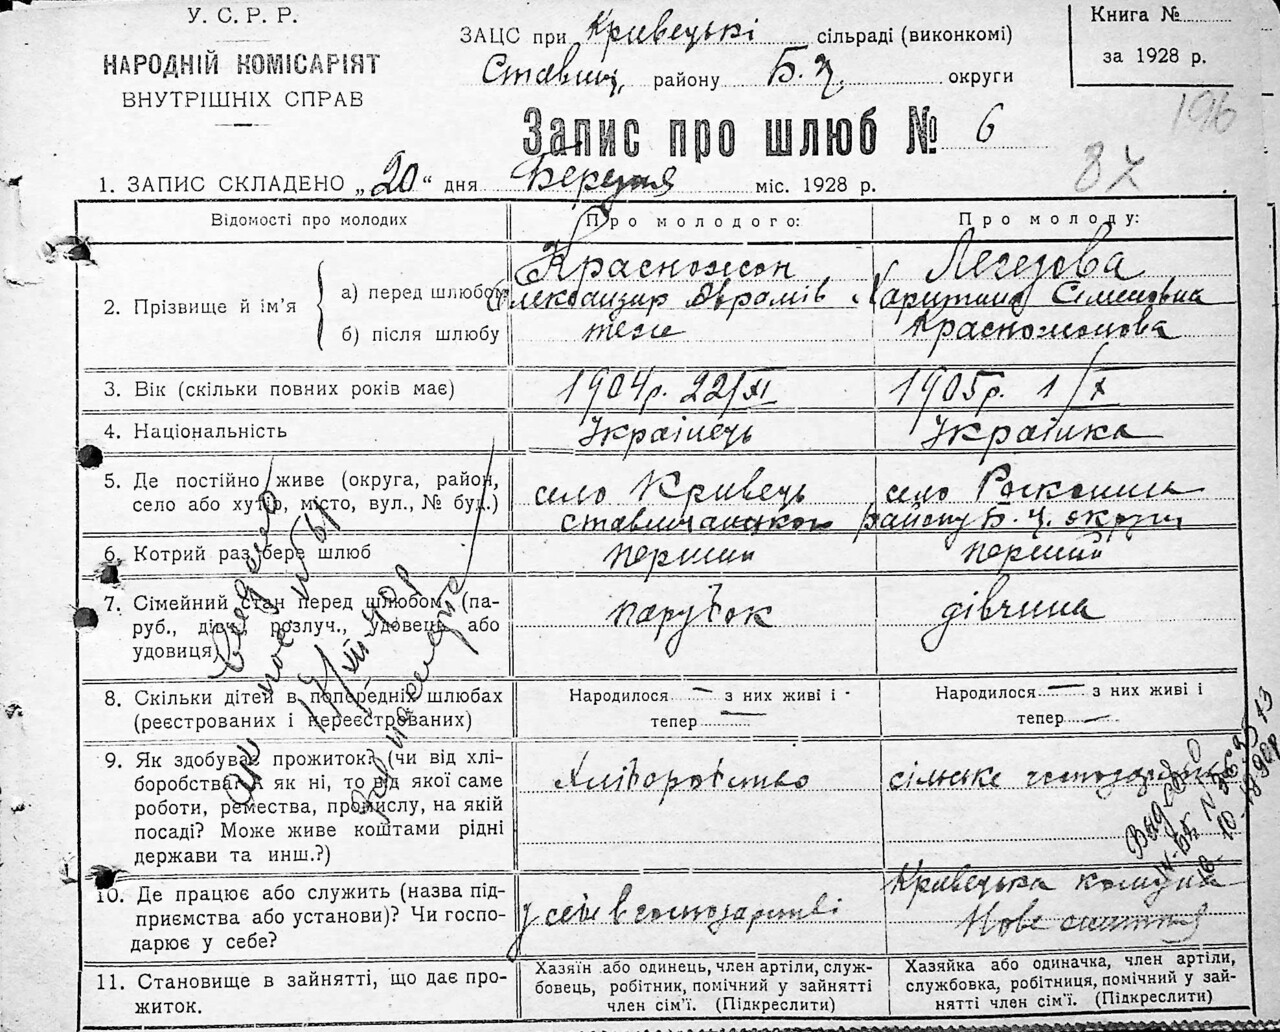 У. С. Р. Р.
НАРОДНІЙ КОМІСАРІЯТ
ВНУТРІШНІХ СПРАВ
ЗАЦС при Кривецькі сільраді (виконкомі)
Ставищ. району Б. Ц. округи
Книга №
за 1928 р.
196
Запис про шлюб № 6
8х
1. ЗАПИС СКЛАДЕНО „20“ дня Березня міс. 1928 р.
Відомості про молодих
Про молодого:
Про молоду:
2. Прізвище й ім’я
а) перед шлюбом
б) після шлюбу
Красножон
Олександир Аврамів
теж
Легезова
Харитина Семеновна
Красножонова
3. Вік (скільки повних років має)
1904р. 22/XI
1905р. 1/X
4. Національність
Українець
Українка
5. Де постійно живе (округа, район,
село або хутір, місто, вул., № буд.)
село Кривець
село
району Б. Ц. округи
6. Котрий раз бере шлюб
перший
перший
7. Сімейний стан перед шлюбом (па-
руб., дівч., розлуч., удовець або
удовиця)
парубок
дівчина
8. Скільки дітей в попередніх шлюбах
(реєстрованих і нереєстрованих)
Народилося — з них живі і
тепер —
Народилося — з них живі і
тепер —
9. Як здобуває прожиток? (чи від хлі-
боробства, а як ні, то від якої саме
роботи, ремества, промислу, на якій
посаді? Може живе коштами рідні
держави та инш.?)
Хліборобство
сільське господарство
10. Де працює або служить (назва під-
приємства або установи)? Чи госпо-
дарює у себе?
у себе в господарстві
Кривецька комуна
Нове життя
11. Становище в зайнятті, що дає про-
житок.
Хазяїн або одинець, член артіли, служ-
бовець, робітник, помічний у зайнятті
член сім’ї. (Підкреслити)
Хазяйка або одиначка, член артіли,
службовка, робітниця, помічний у зай-
нятті член сім’ї. (Підкреслити)
Видано